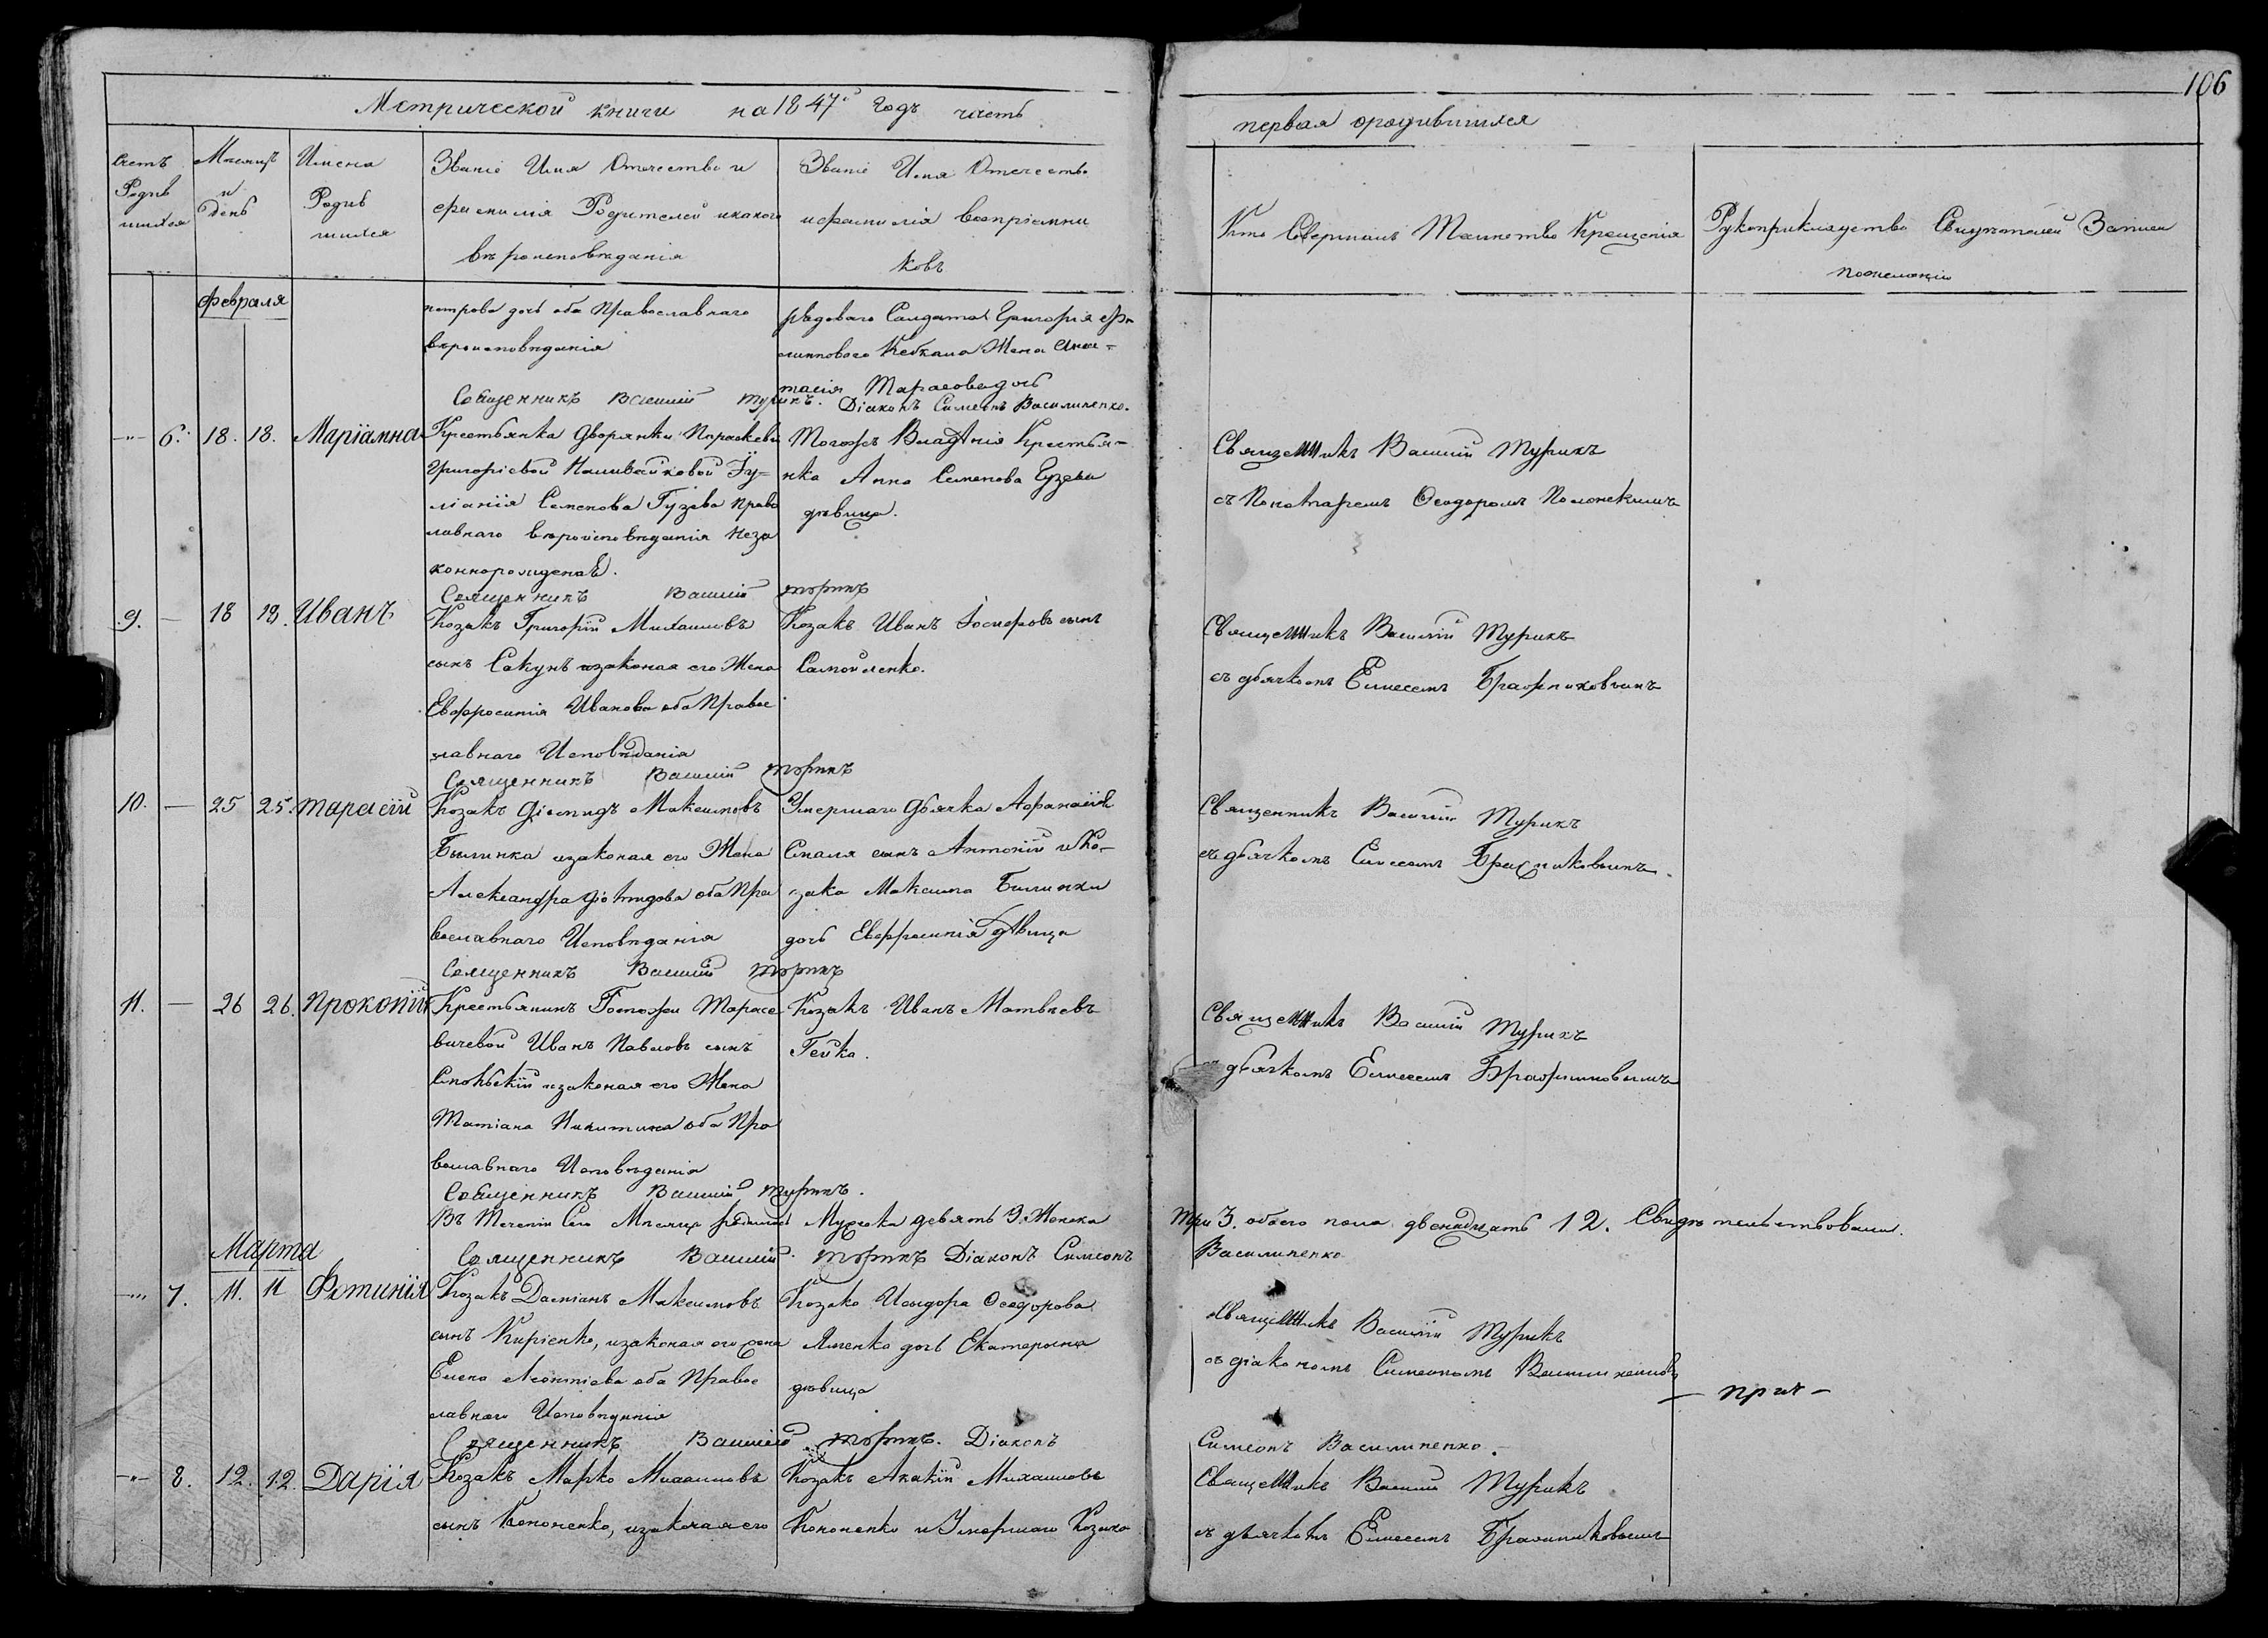 106
Метрической книги на 1847й годъ часть
первая ородившихся
Счетъ Родившихся
Месяцъ и день
Имена Родившихся
Званіе Имя Отечество и
фамилія Родителей икакого
вероисповеданія
Званіе Имя Отечество
ифамилія воспріемни
ковъ
Кто Совершалъ Таинство Крещенія
Рукоприкладство Свидетелей Записи
пожеланію
февраля
петрова дочь оба Православнаго
вероисповеданія
рядоваго Солдата Григорія
Жена Анас=
тасія Тарасова дочь
Священникъ Василій Турикъ. Діаконъ Симеонъ Василиненко.
6. 18. 18. Маріамна
Крестьянка дворянки Параскеви
Григоріевой Наливайковой Іу=
ліанія Семенова Гузева право
славнаго вероисповеданія неза
коннорожденаѣ.
Тогожъ Владенія Крестья-
нка Анна Семенова Гузева
девица.
Священникъ Василій Турикъ
съ Понамаремъ Феодоромъ Полонскимъ
Священникъ Василій турикъ
9. — 18 18. Иванъ
Козакъ Григорій Михаиловъ
сынъ Сакунъ изаконая его Жена
Евфросинія Иванова оба Правос
лавнаго Исповеданія
Козакъ Иванъ Іосифовъ сынъ
Самойленко.
Священникъ Василій Турикъ
съ дьячкомъ Елисеемъ
Священникъ Василій турикъ
10. — 25 25. Тарасій
Козакъ Діомидъ Максимовъ
Былинка изаконая его Жена
Александра оба Пра
вославнаго Исповеданія
Умершаго Дьячка Афанасія
сынъ Антоній и Ко-
зака Максима Билинки
дочь Евфросинія девица
Священникъ Василій Турикъ
съ дьячкомъ Елисеемъ
Священникъ Василій турикъ
11. — 26 26. Прокопій
Крестьянинъ Госпожи Тарасе
вичевой Иванъ Павловъ сынъ
изаконая его Жена
Татіана Никитина оба Пра
вославнаго Исповеданія
Козакъ Иванъ Матвеевъ
Гейко.
Священникъ Василій Турикъ
дьячкомъ Елисеемъ
Священникъ Василій турикъ.
Въ Теченіи Сего Месяца родилось Мужска девять 9. Женска
три 3. обоего пола двенадцать 12. Свидетельствовали.
Священникъ Василій турикъ Діаконъ Симеонъ
Василиненко
Марта
7. 11. 11 Фотинія
Козакъ Даміанъ Максимовъ
сынъ Киріенко, изаконая его жена
Елена Леонтіева оба Правос
лавнаго Исповеданія
Козака Исидора Феодорова
дочь Екатерина
девица
Священникъ Василій Турикъ
съ діакономъ Симеономъ
Священникъ Василій турикъ. Діаконъ
Симеонъ Василиненко.
8. 12. 12. Дарія
Козакъ Марко Михаиловъ
сынъ Кононенко, изаконая его
Козакъ Акакій Михаиловъ
Кононенко и Умершаго Козака
Священникъ Василій Турикъ
съ дьячкомъ Елисеемъ